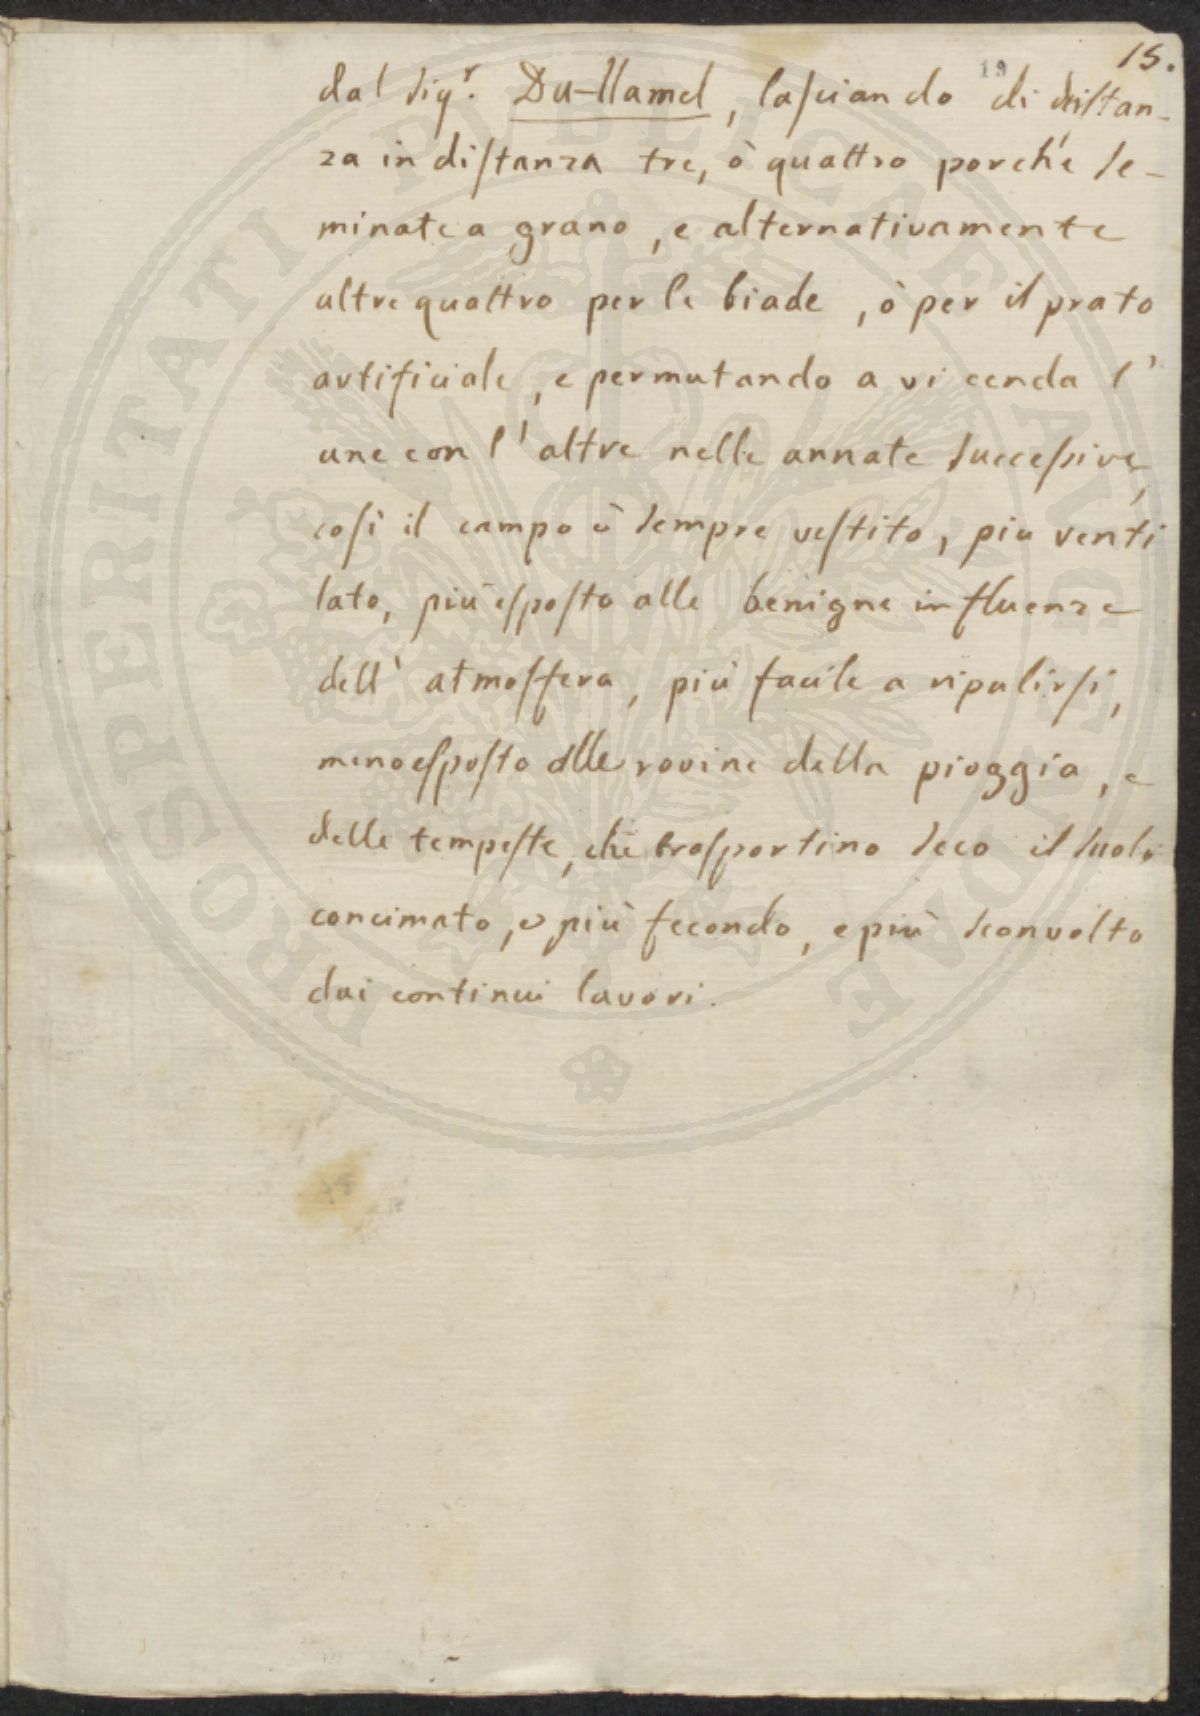 15.
19
dal Sig.r Du-Hamel, lasciando di distan-
za in distanza tre, ò quattro porche se-
minate a grano, e alternativamente
altre quattro per le biade, ò per il prato
artificiale, e permutando a vicenda l'
une con l'altre nelle annate successive,
così il campo è sempre vestito, piu venti
lato, più esposto alle benigne influenze
dell' atmosfera, più facile a ripulirsi,
meno esposto alle rovine della pioggia, e
delle tempeste, che trasportino seco il suolo
concimato, e più fecondo, e più sconvolto
dai continui lavori.
PROSPERITATI PUBLICAE AUGENDAE